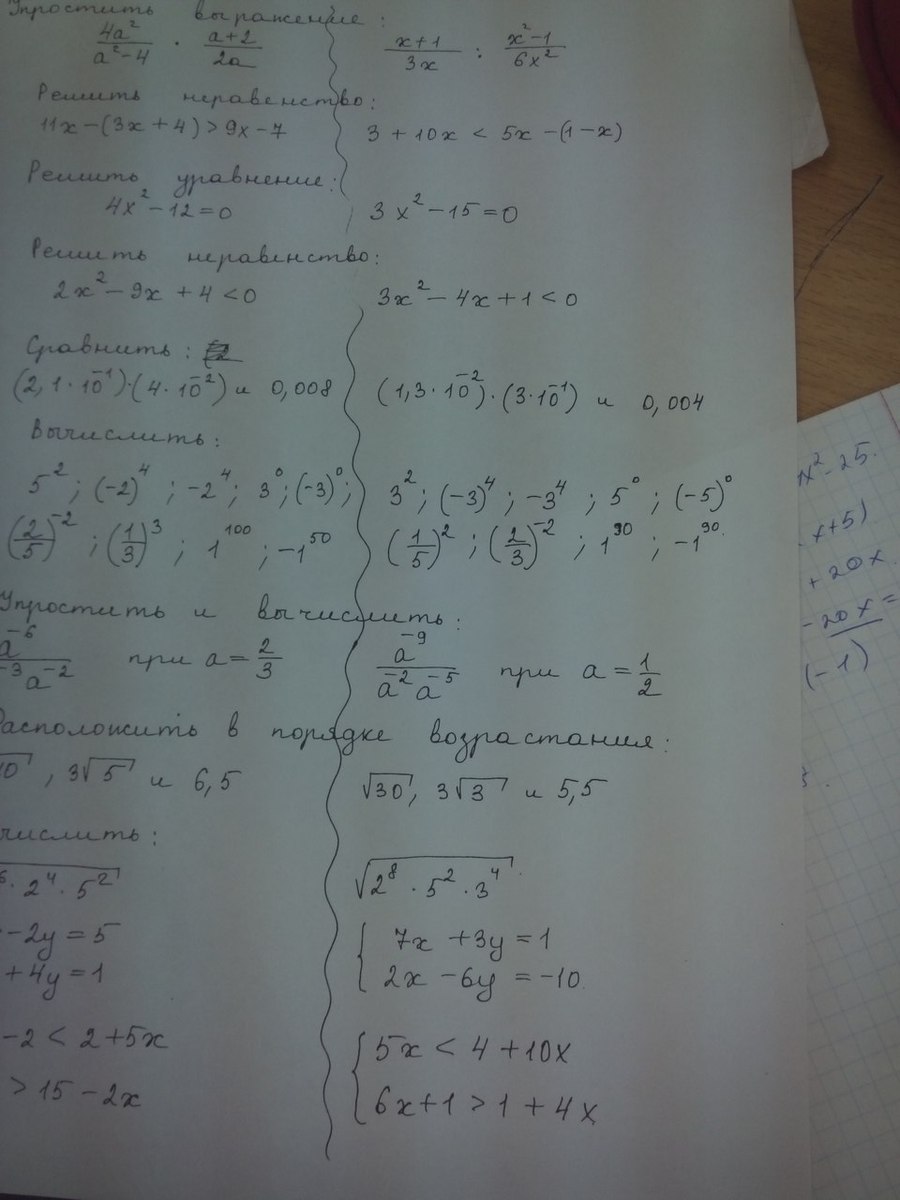 Упростить выражение:
4a²/(a²-4) · (a+2)/2a     (x+1)/3x : (x²-1)/6x²
Решить неравенство:
11x-(3x+4)>9x-7     3+10x < 5x-(1-x)
Решить уравнение:
4x²-12=0     3x²-15=0
Решить неравенство:
2x²-9x+4<0     3x²-4x+1<0
Сравнить:
(2,1·10⁻¹)·(4·10⁻²) и 0,008     (1,3·10⁻²)·(3·10⁻¹) и 0,004
Вычислить:
5²; (-2)⁴; -2⁴; 3⁰; (-3)⁰;     3²; (-3)⁴; -3⁴; 5⁰; (-5)⁰
(2/5)⁻²; (1/3)³; 1¹⁰⁰; -1⁵⁰     (1/5)²; (2/3)⁻²; 1⁹⁰; -1⁹⁰
Упростить и вычислить:
a⁻⁶/(⁻³a⁻²) при a=2/3     a⁻⁹/(a⁻²a⁻⁵) при a=1/2
Расположить в порядке возрастания:
0, 3√5 и 6,5     √30, 3√3 и 5,5
числить:
⁶·2⁴·5²     √(2⁸·5²·3⁴)
-2y=5     { 7x+3y=1
+4y=1     2x-6y=-10
-2<2+5x     { 5x<4+10x
>15-2x     6x+1>1+4x
x²-25.
x+5)
+20x
-20x=
(-1)